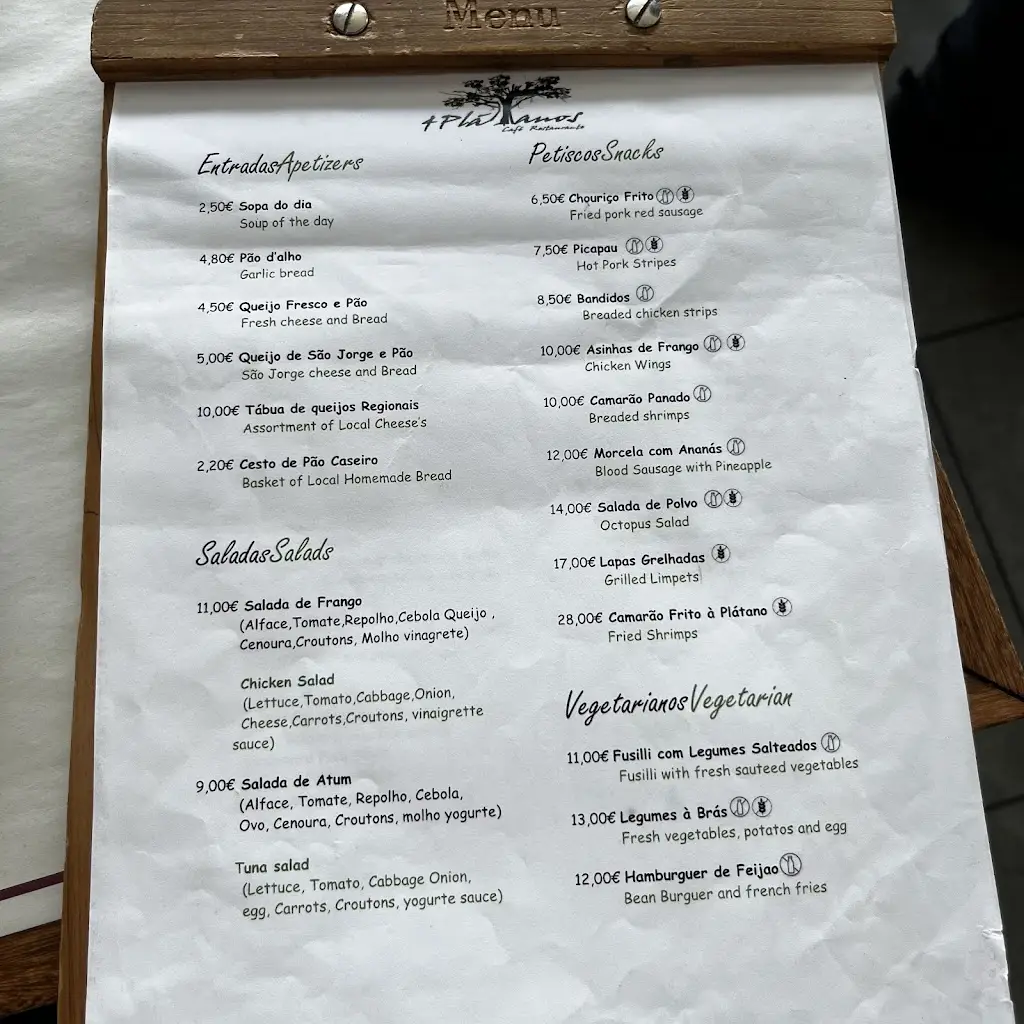 Menu
4 Plátanos
Café Restaurante
EntradasApetizers
2,50€ Sopa do dia
Soup of the day
4,80€ Pão d'alho
Garlic bread
4,50€ Queijo Fresco e Pão
Fresh cheese and Bread
5,00€ Queijo de São Jorge e Pão
São Jorge cheese and Bread
10,00€ Tábua de queijos Regionais
Assortment of Local Cheese's
2,20€ Cesto de Pão Caseiro
Basket of Local Homemade Bread
SaladasSalads
11,00€ Salada de Frango
(Alface,Tomate,Repolho,Cebola Queijo ,
Cenoura,Croutons, Molho vinagrete)
Chicken Salad
(Lettuce,Tomato,Cabbage,Onion,
Cheese,Carrots,Croutons, vinaigrette
sauce)
9,00€ Salada de Atum
(Alface, Tomate, Repolho, Cebola,
Ovo, Cenoura, Croutons, molho yogurte)
Tuna salad
(Lettuce, Tomato, Cabbage Onion,
egg, Carrots, Croutons, yogurte sauce)
PetiscosSnacks
6,50€ Chouriço Frito
Fried pork red sausage
7,50€ Picapau
Hot Pork Stripes
8,50€ Bandidos
Breaded chicken strips
10,00€ Asinhas de Frango
Chicken Wings
10,00€ Camarão Panado
Breaded shrimps
12,00€ Morcela com Ananás
Blood Sausage with Pineapple
14,00€ Salada de Polvo
Octopus Salad
17,00€ Lapas Grelhadas
Grilled Limpets
28,00€ Camarão Frito à Plátano
Fried Shrimps
VegetarianosVegetarian
11,00€ Fusilli com Legumes Salteados
Fusilli with fresh sauteed vegetables
13,00€ Legumes à Brás
Fresh vegetables, potatos and egg
12,00€ Hamburguer de Feijao
Bean Burguer and french fries